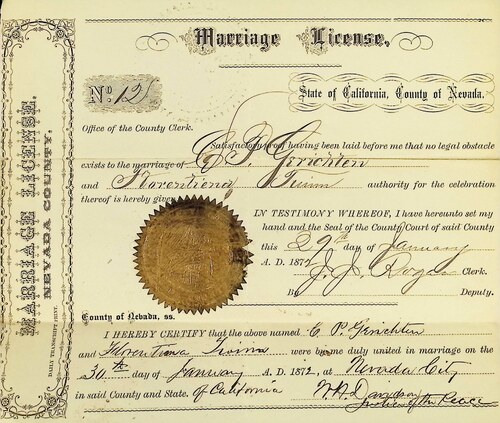 Marriage License.
MARRIAGE LICENSE.
NEVADA COUNTY.
DAILY TRANSCRIPT PRINT.
No. 12
State of California, County of Nevada.
Office of the County Clerk.
Satisfactory proof having been laid before me that no legal obstacle
exists to the marriage of C. P. Gerichten
and authority for the celebration
thereof is hereby given
IN TESTIMONY WHEREOF, I have hereunto set my
hand and the Seal of the County Court of said County
this 29th day of January
A. D. 1872 J. J. Rogers Clerk.
By Deputy.
County of Nevada, ss.
I HEREBY CERTIFY that the above named C. P. Gerichten
and were by me duly united in marriage on the
30th day of January A. D. 1872, at Nevada City
in said County and State. of California
Davidson
Justice of the Peace